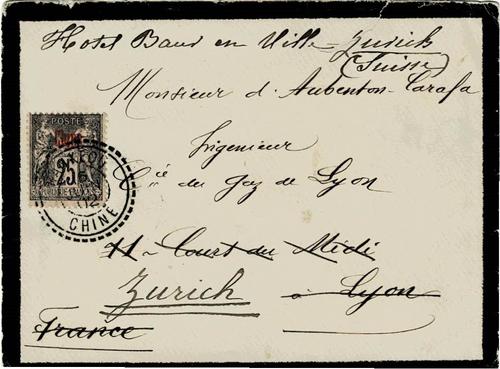 Hotel Baur en Ville - Zurich
(Suisse)
Monsieur d'Aubenton-Carafa
Ingenieur
POSTE
Chine
25
Cie du Gaz de Lyon
CHINE
11 - Court du Midi
Zurich à Lyon
France